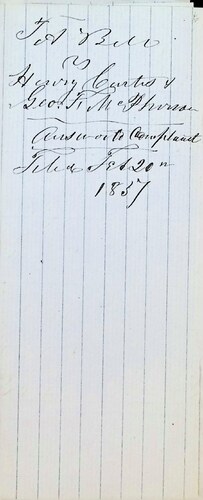 T A Bell
v
Henry Curtis &
Geo. F. McPherson
Answer to Complaint
Filed Feb 20th
1857